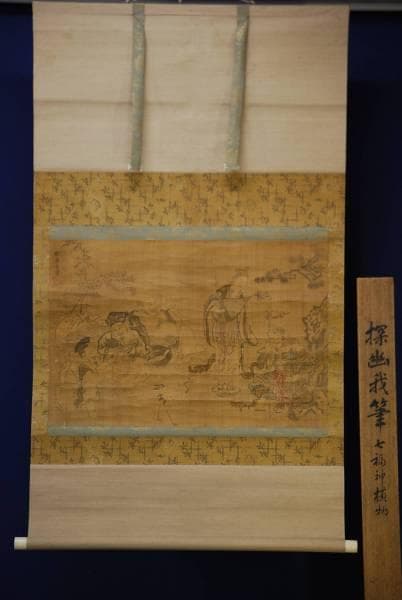 探幽我筆
七福神横物